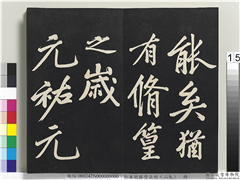 能矣猶
有脩篁
之歲
元祐元
15